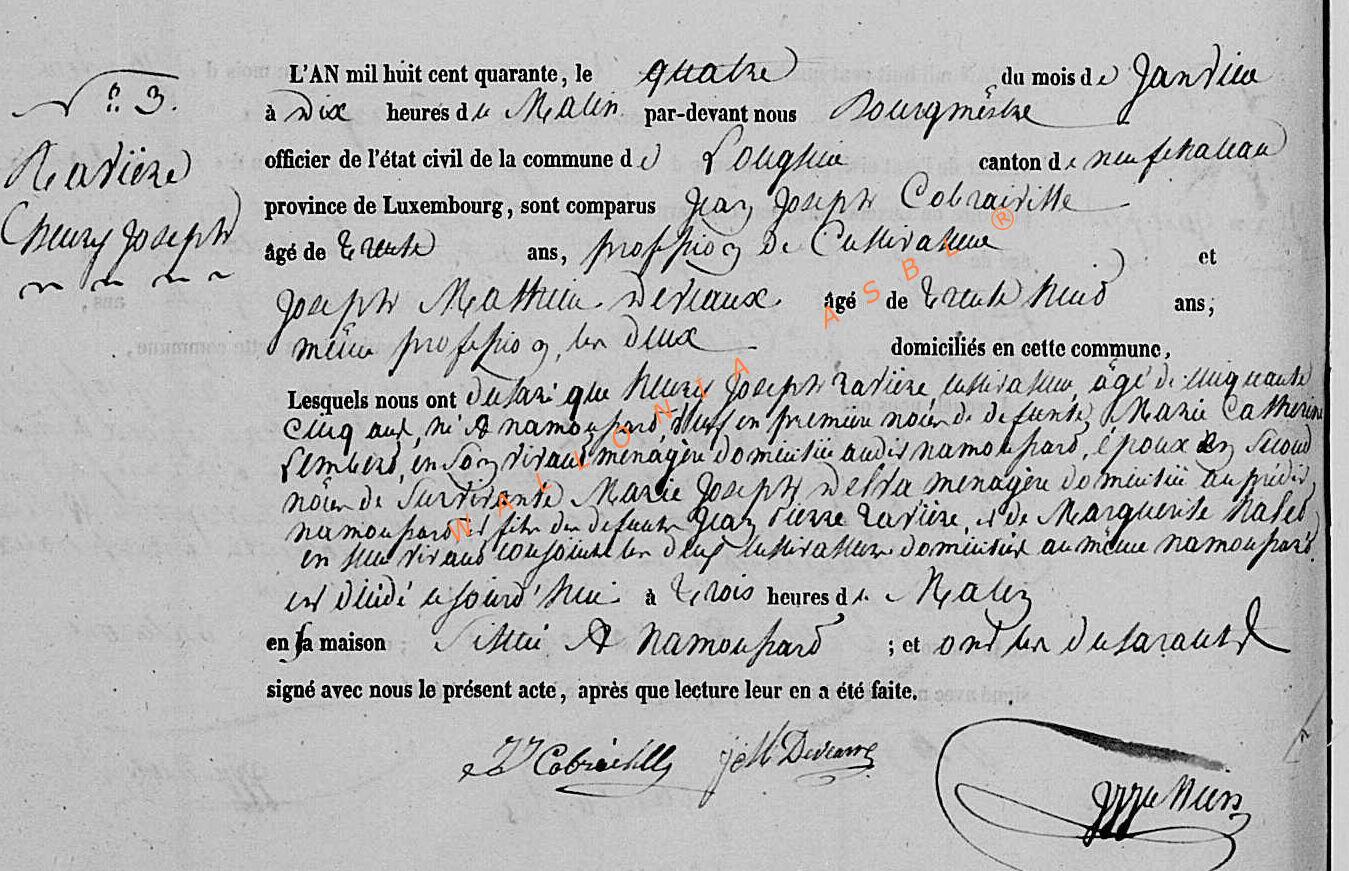 N° 3.
Ravière
Henry Joseph
L'AN mil huit cent quarante, le quatre du mois de Janvier
à Dix heures du Matin par-devant nous Bourgmêstre
officier de l'état civil de la commune de Longlier canton de neufchateau
province de Luxembourg, sont comparus Jean Joseph Cobraiville
âgé de trente ans, profession de Cultivateur et
Joseph Mathieu Deveaux âgé de trente neuf ans,
même profession, les deux domiciliés en cette commune,
Lesquels nous ont declaré que henry Joseph ravière, cultivateur, âgé de cinquante
cinq ans, né A namoussard, veuf en première noces de defunte Marie Catherine
Lembert, en son vivant ménagère domiciliée audit namoussard, époux En second
noces de Survivante Marie Joseph menagère domiciliée au prédit
namoussard, et fils des defunts Jean Pierre ravière, et de Marguerite
en leur vivant conjoints les deux cultivateurs domiciliés au même namoussard
est décédé cejourd'hui à trois heures du Matin
en sa maison Située A namoussard ; et ont les declarants
signé avec nous le présent acte, après que lecture leur en a été faite.
JJ Cobraiville JM Deveaux
WALLONIA ASBL ®